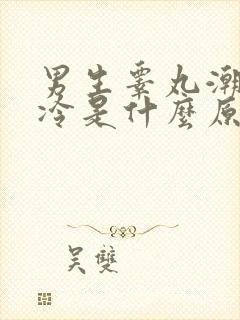 男生睾丸潮
冷是什麼原
吴雙